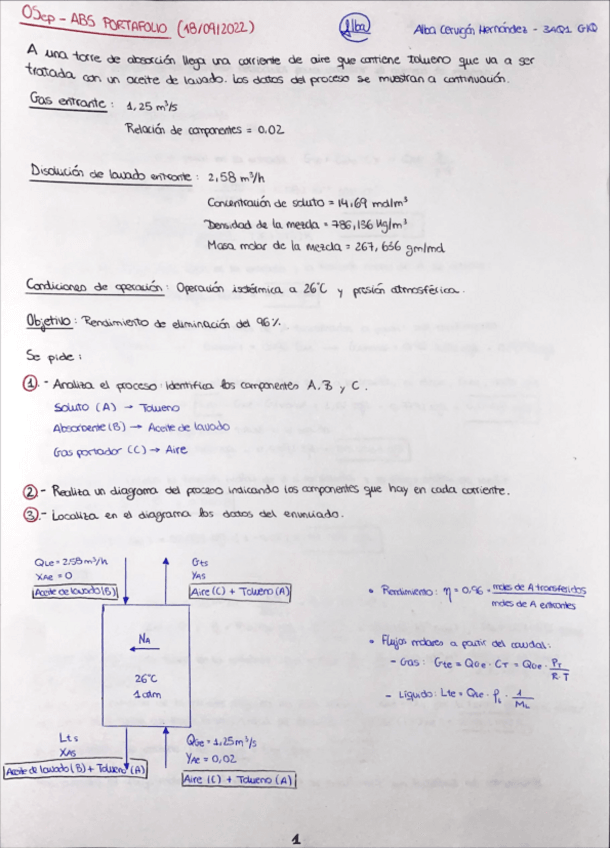 OSep - ABS PORTAFOLIO (18/09/2022)
Alba
Alba Cerugón Hernández - 3AQ1 GKD
A una torre de absorción llega una corriente de aire que contiene tolueno que va a ser
tratada con un aceite de lavado. Los datos del proceso se muestran a continuación.
Gas entrante: 1,25 m³/s
Relación de componentes = 0.02
Disolución de lavado entrante: 2,58 m³/h
Concentración de soluto = 14,69 mol/m³
Densidad de la mezcla = 786,136 Kg/m³
Masa molar de la mezcla = 267,656 gm/mol
Condiciones de operación: Operación isotérmica a 26°C y presión atmosférica.
Objetivo: Rendimiento de eliminación del 96%.
Se pide:
1.- Analiza el proceso: identifica los componentes A, B y C.
Soluto (A) → Tolueno
Absorbente (B) → Aceite de lavado
Gas portador (C) → Aire
2.- Realiza un diagrama del proceso indicando los componentes que hay en cada corriente.
3.- Localiza en el diagrama los datos del enunciado.
QLe = 2.58 m³/h
XAe = 0
Aceite de lavado (B)
Gts
YAS
Aire (C) + Tolueno (A)
NA
26°C
1 atm
Lts
XAS
Aceite de lavado (B) + Tolueno (A)
QGe = 1,25 m³/s
YAe = 0,02
Aire (C) + Tolueno (A)
• Rendimiento: η = 0.96 = moles de A transferidos / moles de A entrantes
• Flujos molares a partir del caudal:
- Gas: Gte = QGe · CT = QGe · PT / R·T
- Líquido: Lte = QLe · ρL · 1 / ML
1